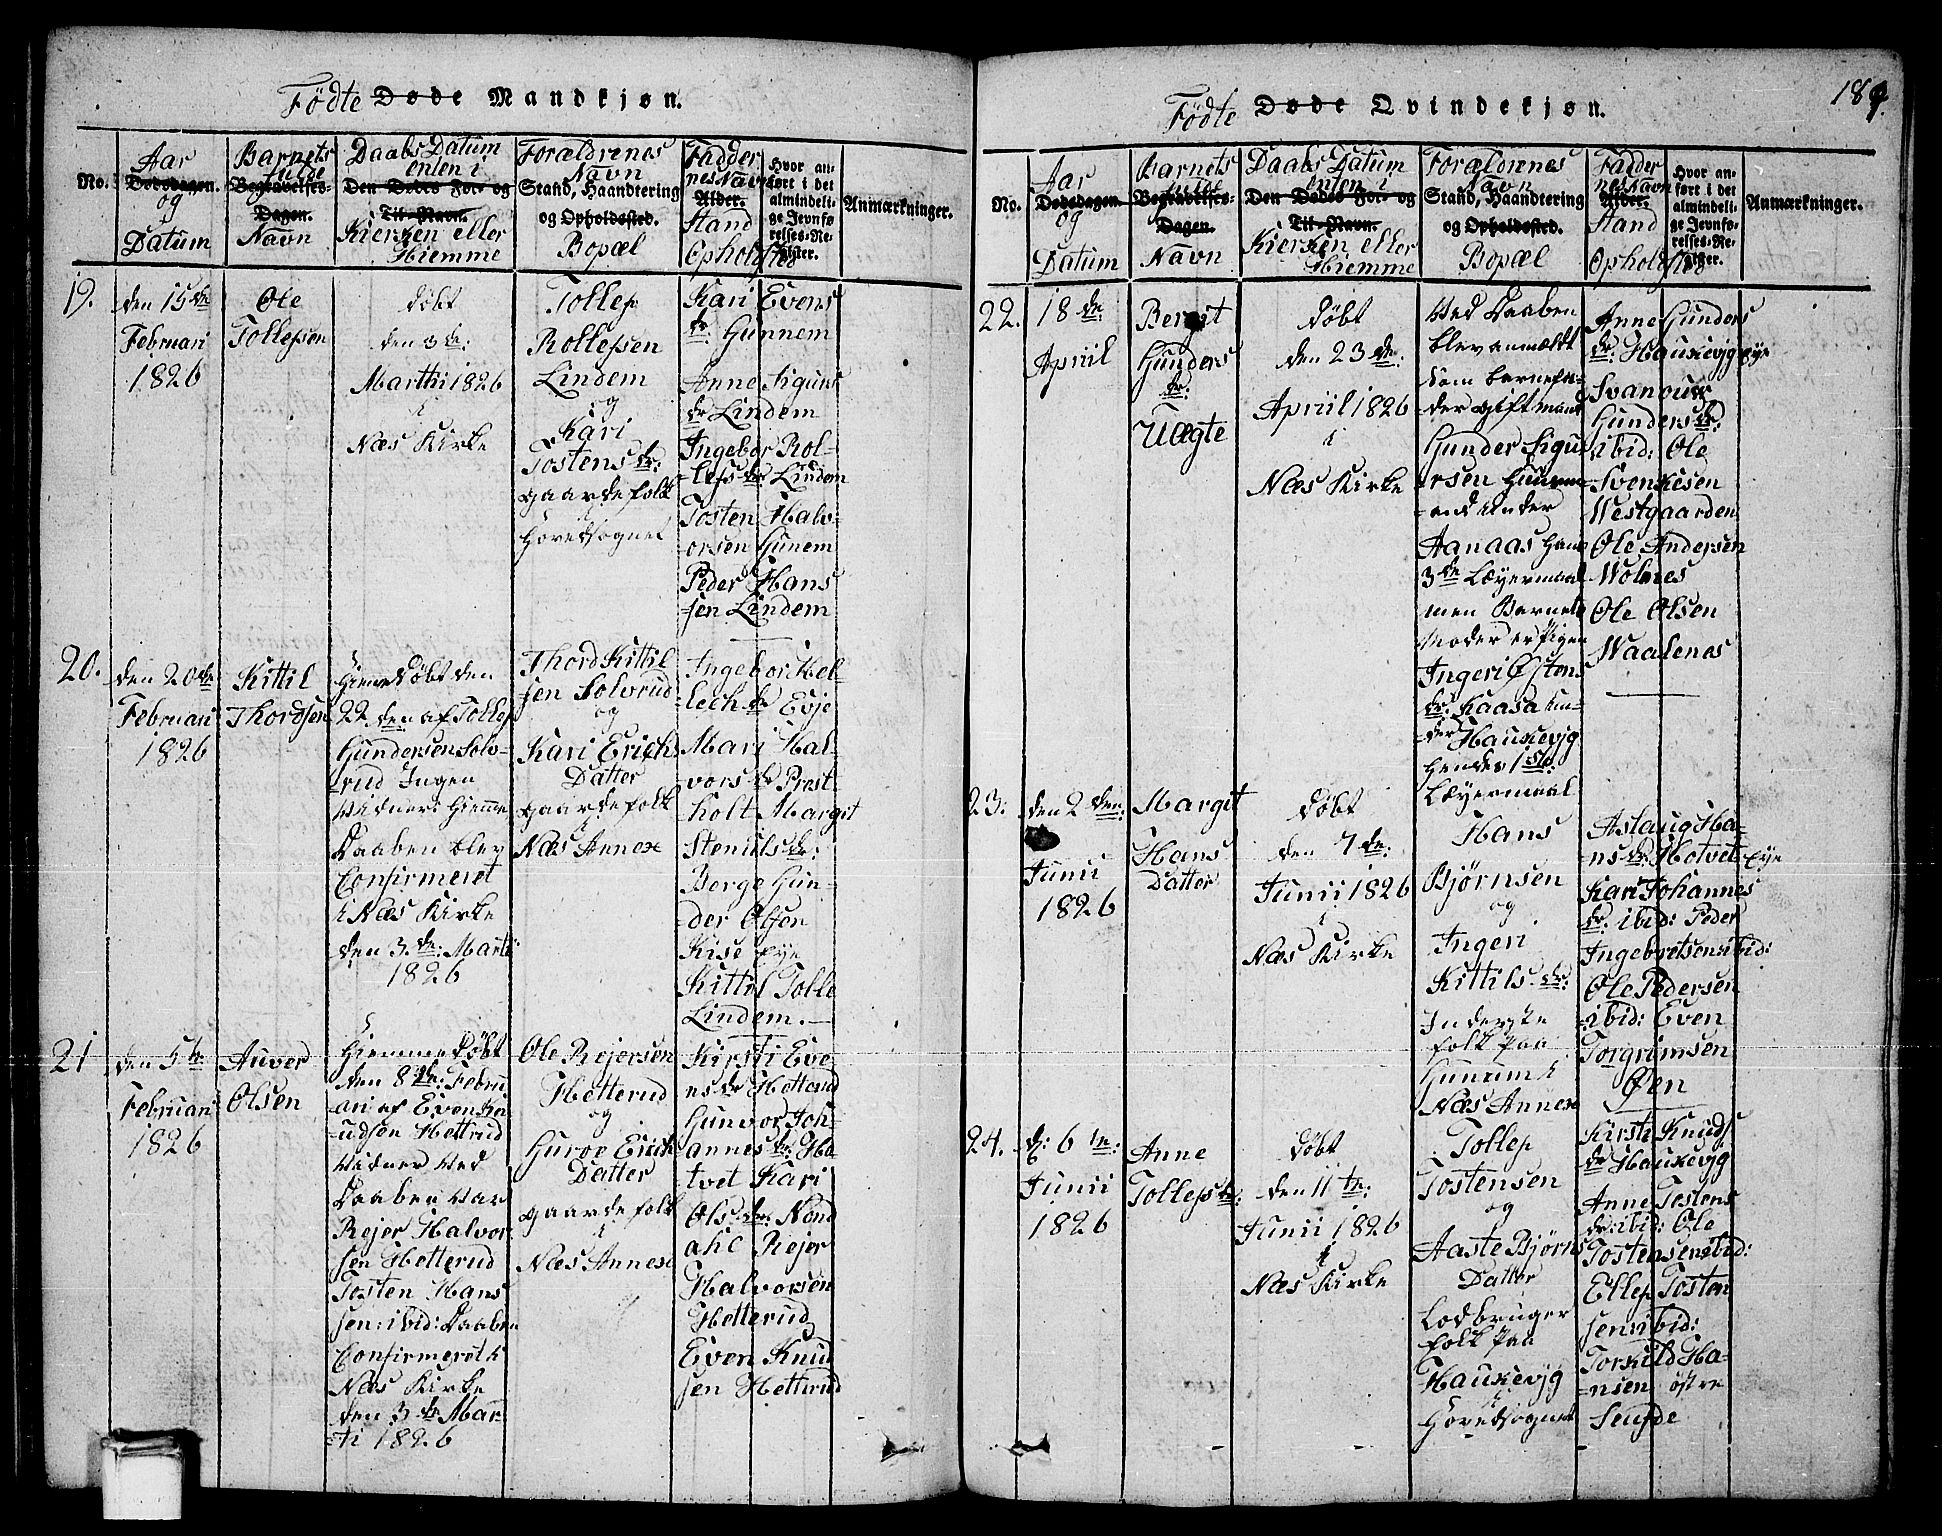 Fødte Døde Mandkjøn.
No.
Aar
Dødsdagen.
og
Datum
Barnets
fulde
Begravelses-
Dagen.
Navn
Daabs Datum
enten i
Den Dødes For- og
Til-Navn.
Kierken eller
Hiemme
Forældrenes
Navn
Stand, Haandtering
og Opholdssted.
Bopæl
Fadder
nes Navn
Alder.
Stand
Opholdsted
Hvor an-
ført i det
almindeli-
ge Jevnfø-
relses-Re-
gister.
Anmærkninger.
19.
den 15de
Februari
1826
Ole
Tollefsen
døbt
den 3de:
Marthi 1826
i
Næs Kirke
Tollef
Rollefsen
Lindem
og
Kari
Tostens dr:
gaardefolk
Hovedsognet
Kari Evens
dr: Gunnem
Anne Siguns
dr Lindem
Ingebor Rol-
-lefs dr Lindem
Tosten Halv-
orsen Gunem
Peder Hans
-sen Lindem
20.
den 20de
Februari
1826
Kittil
Thordsen
Hiemedøbt den
22 den af Tollef
Gundersen Solv-
rud Ingen
Vidner i Hieme
Daaben blev
Confirmeret
i Næs Kirke
den 3de: Marti
1826
Thord Kittil
sen Solvrud
og
Kari Erichs
Datter
gaardefolk
i
Næs Annex
Ingebor Kel-
lech dr Evje
Mari Hal-
vors dr Prest-
holt Margit
Stenuls dr:
Berge Gun-
der Olsen
Kise eye
Kittil Tolle
Lindem.
21
den 5te
Februari
1826
Auver
Olsen
Hiemmedøbt
den 8de: Febru
ari af Even Kn
-udsen Hettrud
Vidner Ved
Daaben Var
Rejer Halvor
sen Hetterud
Tosten Hans
sen: ibid: Daaben
Confirmeret i
Næs Kirke
den 3de Mar
ti 1826
Ole Rejersen
Hetterud
og
Guroe Erich
Datter
gaardefolk
i
Næs Annex
Kirsti Eve
ns dr Hetterud
Gunvor Joh-
annes dr: Ha
tvet Kari
Ols dr: Nord
ahl Rejer
Halvorsen
Hetterud
Even Knud
sen Hetterud
189.
Fødte Døde Qvindekjøn.
No.
Aar
Dødsdagen.
og
Datum
Barnets
fulde
Begravelses-
Dagen.
Navn
Daabs Datum
enten i
Den Dødes For- og
Til-Navn.
Kierken eller
Hiemme
Forældrenes
Navn
Stand, Haandtering
og Opholdssted.
Bopæl
Fadder
nes Navn
Alder.
Stand
Opholdsted
Hvor an-
ført i det
almindeli-
ge Jevnfø-
relses-Re-
gister.
Anmærkninger.
22.
18de
Apriil
Bergit
Gunders
dr:
Uægte
døbt
den 23de:
Apriil 1826
i
Næs Kirke
Ved Daaben
blev anmeldt
som barnefa-
der gift mand
Gunder Sigu
rsen
under
Aanaas Hans
3de Leyermaal
men Barnets
Moder er Pigen
Ingeri Østens
dr: Kaasa un-
-der Haukevjg
Hendes 1ste
Leyermaal
Anne Gunders
dr: Haukevjg eye
Gunders dr:
ibid: Ole
Svenkesen
Westgaarden
Ole Andersen
Wolnes
Ole Olsen
Waalenes
23:
den 2den:
Junii
1826
Margit
Hans
Datter
døbt
den 7de:
Junii 1826
i
Næs Kirke
Hans
Bjørnsen
og
Ingeri
Kittils dr:
Inderste
folk paa
Gunum i
Næs Annex
Aslaug Ha-
ns dr: Hotvet eye
Kari Johannes
dr: ibid: Peder
Ingebretsen ibid:
Ole Pedersen
ibid: Even
Torgrimsen
Øen
24.
d: 6te:
Junii
1826
Anne
Tollefs dr:
døbt
den 11te:
Junii 1826
i
Næs Kirke
Tollef
Tostensen
og
Aaste Bjørns
Datter
Lodbruger
folk paa
Haukevjg
i
Hovedsognet
Kirsti Knuds
dr Haukevjg
Anne Tostens
dr: ibid: Ole
Tostensen ibid:
Ellef Tosten
sen ibid:
Torkild Ha-
-nsen østre
Seufde